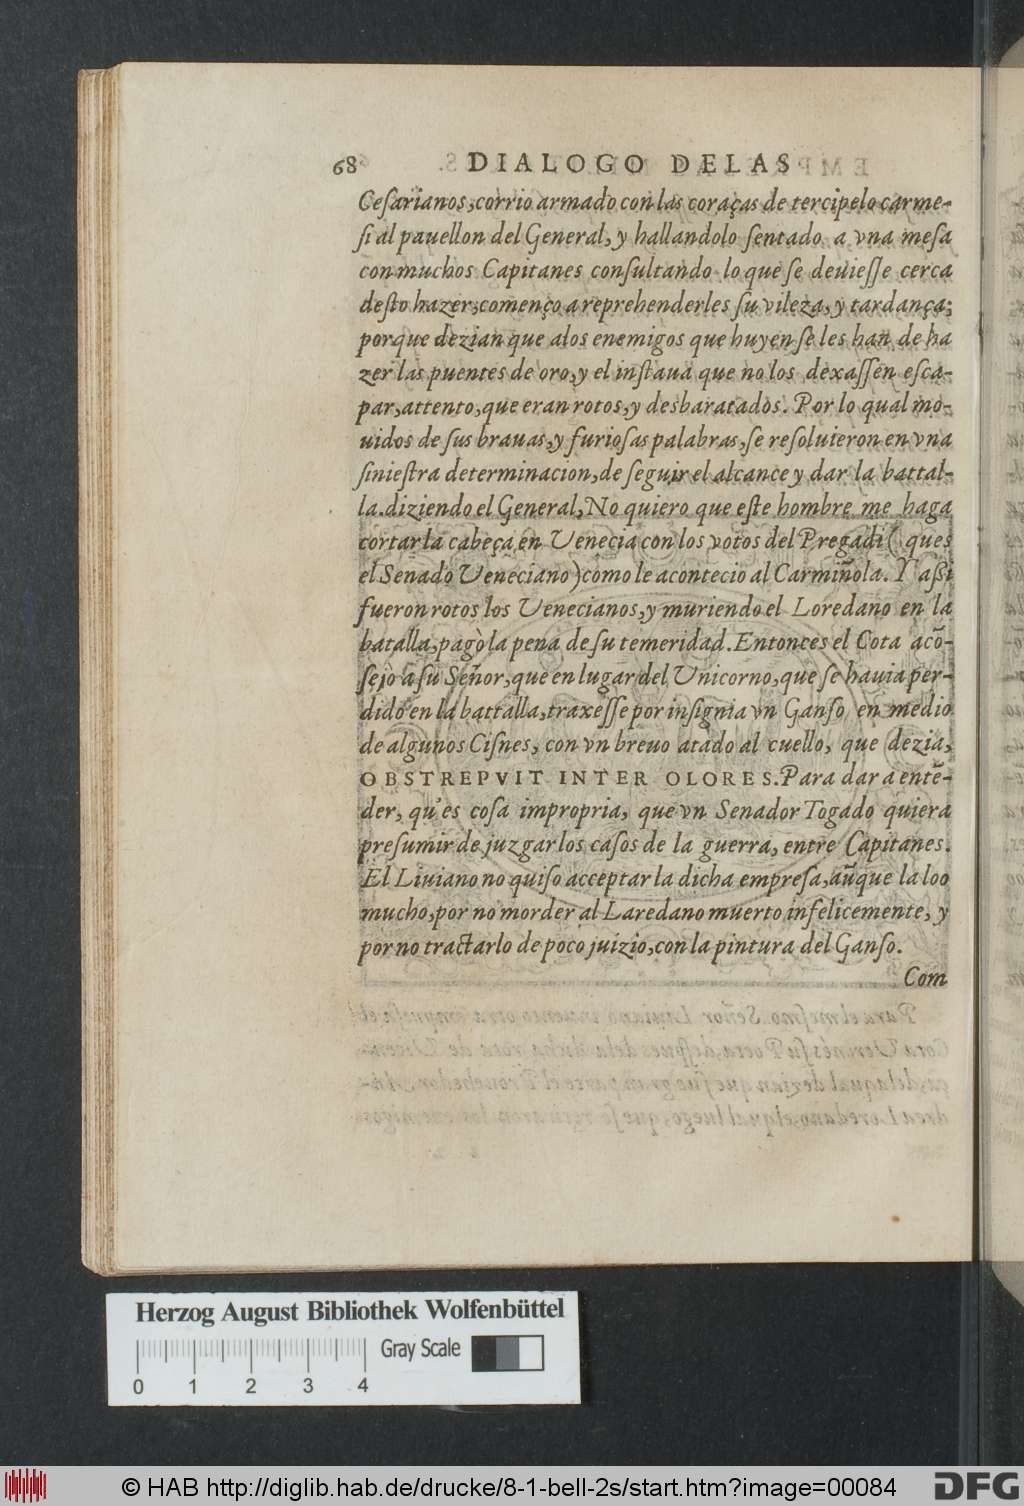 68 DIALOGO DE LAS
Ceſarianos, corrio armado con las coraças de tercipelo carme-
ſi al pauellon del General, y hallandolo ſentado a vna meſa
con muchos Capitanes conſultando lo que ſe deuieſſe cerca
deſto hazer, començo a reprehenderles ſu vileza, y tardança;
porque dezian que alos enemigos que huyen ſe les han de ha
zer las puentes de oro, y el inſtaua que no los dexaſſen eſca-
par, attento, que eran rotos, y desbaratados. Por lo qual mo-
uidos de ſus brauas, y furioſas palabras, ſe reſoluieron en vna
ſinieſtra determinacion, de ſeguir el alcance y dar la battal-
la. diziendo el General, No quiero que eſte hombre me haga
cortar la cabeça en Venecia con los votos del Pregadi ( ques
el Senado Veneciano ) como le acontecio al Carmiñola. Y aßi
fueron rotos los Venecianos, y muriendo el Loredano en la
batalla, pagò la pena de ſu temeridad. Entonces el Cota acõ-
ſejò a ſu Señor, que en lugar del Unicorno, que ſe hauia per-
dido en la battalla, traxeſſe por inſignia vn Ganſo en medio
de algunos Ciſnes, con vn breuo atado al cuello, que dezia,
OBSTREPVIT INTER OLORES. Para dar a entẽ-
der, qu'es coſa impropria, que vn Senador Togado quiera
preſumir de juzgar los caſos de la guerra, entre Capitanes.
El Liuiano no quiſo acceptar la dicha empreſa, aũque la loo
mucho, por no morder al Laredano muerto infelicemente, y
por no tractarlo de poco juizio, con la pintura del Ganſo.
Com
Herzog August Bibliothek Wolfenbüttel
Gray Scale
0 1 2 3 4
© HAB http://diglib.hab.de/drucke/8-1-bell-2s/start.htm?image=00084
DFG